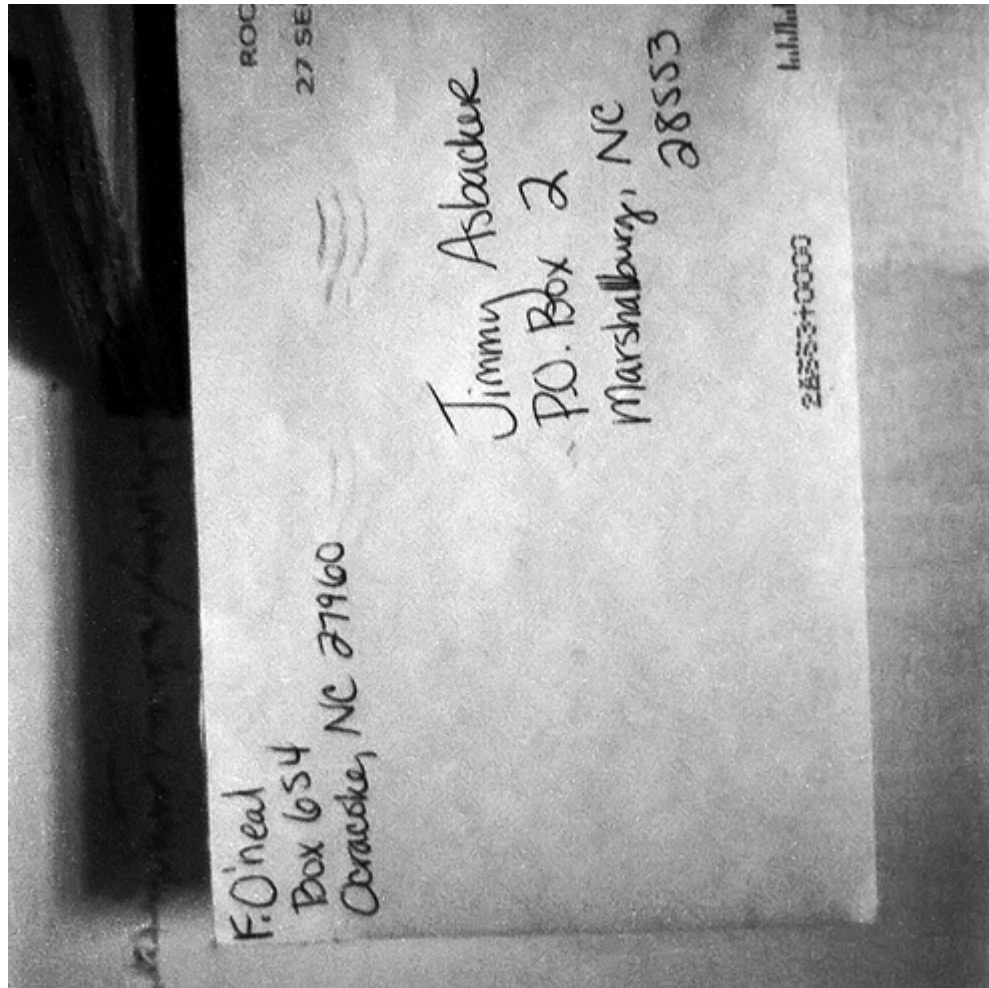 F. O'neal
Box 654
Ocracoke, NC 27960
ROC
27 SE
Jimmy Asbacher
P.O. Box 2
Marshallburg, NC
28553
28553+0000